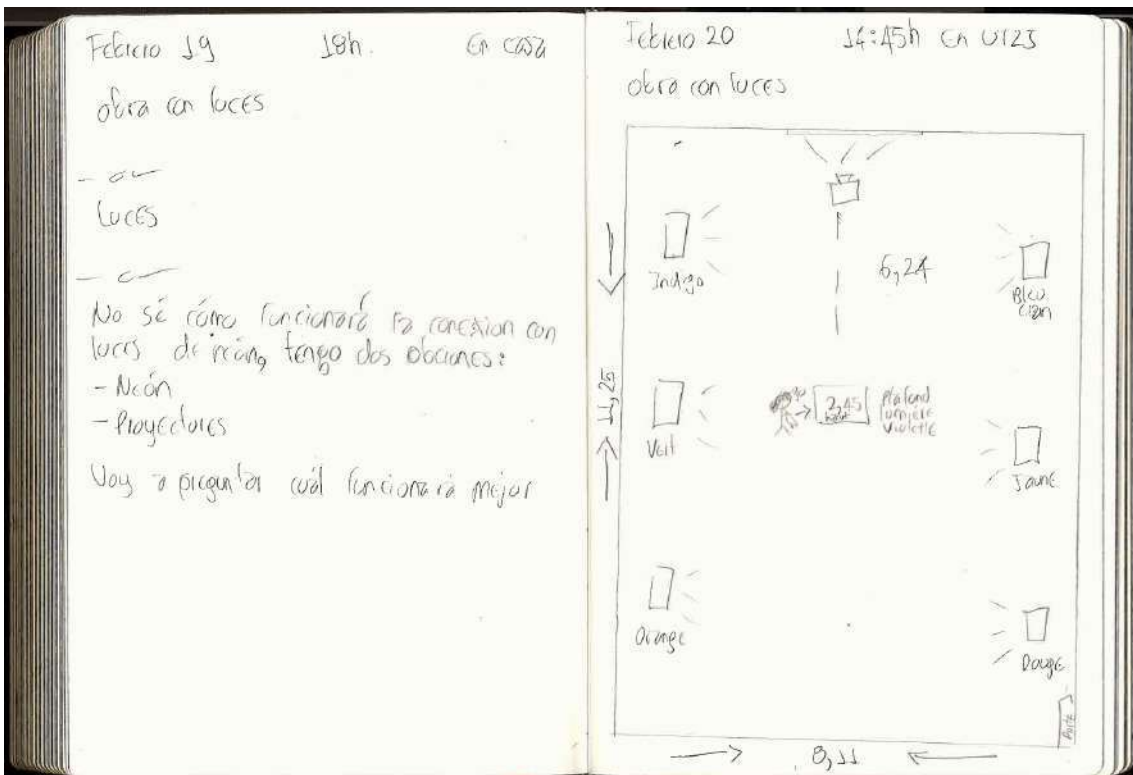 Febrero 19 18h. En casa
obra con luces
Luces
No sé cómo funcionará la conexion con
luces de neón, tengo dos obciones:
- Neón
- Proyectores
Voy a preguntar cuál funcionará mejor
Febrero 20 14:45h En U123
obra con luces
Indigo
6,24
Bleu
cian
11,25
Vert
2,45
Plafond
lumière
violette
Jaune
Orange
Rouge
Porte
8,11